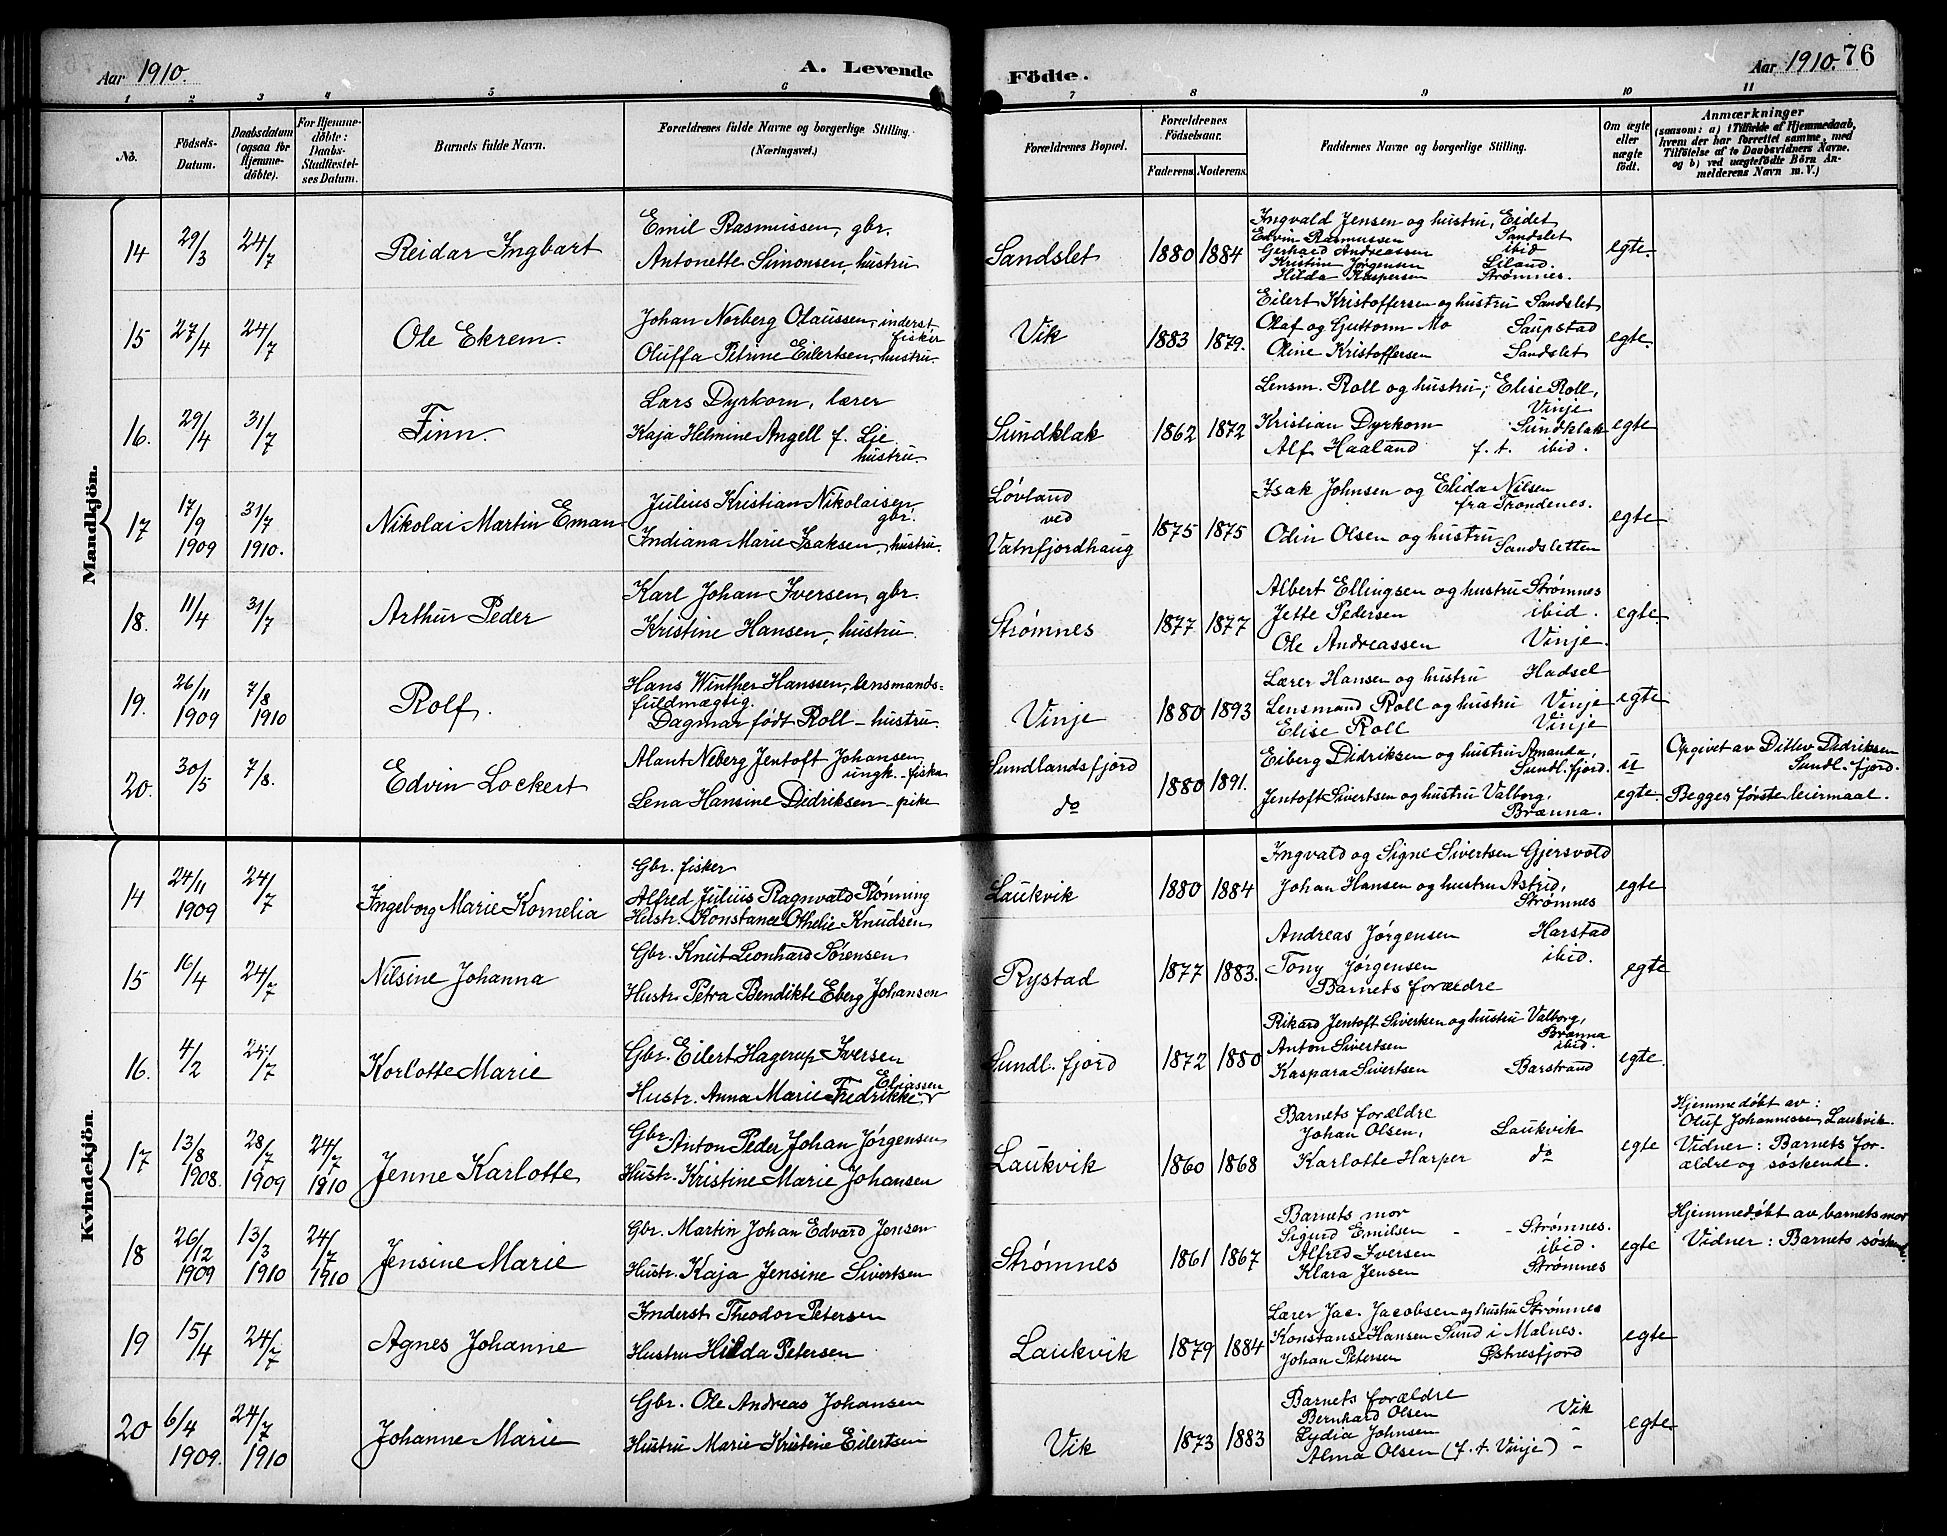 Aar 1910.
A. Levende
Födte.
Aar 1910. 76
1 2 3 4 5 6 7 8 9 10 11
No.
Födsels-
Datum.
Daabsdatum
(ogsaa for
Hjemme-
döbte).
For Hjemme-
döbte:
Daabs-
Stadfæstel-
ses Datum.
Barnets fulde Navn.
Forældrenes fulde Navne og borgerlige Stilling.
(Næringsvei.)
Forældrenes Bopæl.
Forældrenes
Födselsaar.
Faderens. Moderens.
Faddernes Navne og borgerlige Stilling.
Om ægte
eller
uægte
födt.
Anmærkninger
(saasom: a) i Tilfælde af Hjemmedaab,
hvem der har forrettet samme, med
Tilföielse af to Daabsvidners Navne.
og b) ved uægtefödte Börn An-
melderens Navn m. V.)
Mandkjön.
14 29/3 24/7 Reidar Ingbart
Emil Rasmussen, gbr.
Antonette Simonsen, hustru
Sandslet 1880 1884
Ingvald Jensen og hustru, Eidet
Edvin Rasmussen Sandslet
Gerhard Andreassen ibid
Kristine Jørgensen Liland.
Hilda Kaspersen Strømnes.
egte.
15 27/4 24/7 Ole Ekrem.
Johan Norberg Olaussen, inderst
fisker
Oluffa Petrine Eilertsen, hustru
Vik 1883 1879.
Eilert Kristoffersen og hustru Sandslet
Olaf og Guttorm Mo Saupstad
Oline Kristoffersen Sandslet
egte.
16. 29/4 31/7 Finn.
Lars Dyrkorn, lærer
Kaja Helmine Angell f. Lie
hustru.
Sundklak 1862 1872
Lensm. Roll og hustru; Elise Roll,
Vinje
Kristian Dyrkorn Sundklak
Alf Haaland f. t. ibid.
egte
17 17/9 1909 31/7 1910. Nikolai Martin Eman
Julius Kristian Nikolaisen
gbr.
Indiana Marie Isaksen, hustru.
Løvland
ved
Vatnfjordhaug
1875 1875
Isak Johnsen og Elida Nilsen
fra Trondenes.
Odin Olsen og hustru
Sandsletten
egte
18. 11/4 31/7 Arthur Peder
Karl Johan Iversen, gbr.
Kristine Hansen, hustru
Strømnes 1877 1877
Albert Ellingsen og hustru Strømnes
Jette Pedersen ibid.
Ole Andreassen Vinje.
egte.
19. 26/11 1909 7/8 1910 Rolf.
Hans Winther Hanssen, lensmands-
fuldmægtig.
Dagmar født Roll - hustru.
Vinje 1880 1893
Lærer Hansen og hustru Hadsel
Lensmand Roll og hustru Vinje
Elise Roll Vinje
egte
20. 30/5 7/8. Edvin Lockert
Alant Neberg Jentoft Johansen
ungk. - fisker
Lena Hansine Didriksen - pike
Sundlandsfjord
do
1880 1891.
Eiberg Didriksen og hustru Amanda,
Sundl. fjord.
Jentoft Sivertsen og hustru Valborg,
Brænna.
u
egte.
Opgivet av Ditlev Didriksen
Sundl. fjord.
Begges første leiermaal.
Kvindekjön
14 24/11 1909 24/7 Ingeborg Marie Kornelia
Gbr. fisker
Alfred Julius Ragnvald Rønning
Hustr. Konstance Othelie Knudsen
Laukvik 1880 1884
Ingvald og Signe Sivertsen Gjersvold
Johan Hansen og hustru Astrid,
Strømnes
egte
15 16/4 24/7 Nilsine Johanna
Gbr. Knut Leonhard Sørensen
Hustr. Petra Bendikte Eberg Johansen
Rystad 1877 1883.
Andreas Jørgensen Harstad
Tony Jørgensen ibid.
Barnets forældre
egte
16. 4/2 24/7 Korlotte Marie
Gbr. Eilert Hagerup Iversen
Eliassen
Hustr. Anna Marie Fredrikke
Sundl. fjord 1872 1880
Rikard Jentoft Sivertsen og hustru Valborg,
Brænna
Anton Sivertsen ibid.
Kaspara Sivertsen Barstrand
egte.
17 13/8 1908. 28/7 1909 24/7 1910 Jenne Karlotte
Gbr. Anton Peder Johan Jørgensen
Hustr. Kristine Marie Johansen
Laukvik 1860 1868
Barnets forældre
Johan Olsen, Laukvik
Karlotte Harper do
egte
Hjemmedøbt av:
Oluf Johannessen Laukvik.
Vidner: Barnets for-
ældre og søskende.
18 26/12 1909 13/3 1910 24/7 1910 Jensine Marie
Gbr. Martin Johan Edvard Jensen
Hustr. Kaja Jensine Sivertsen
Strømnes 1861 1867
Barnets mor
Sigurd Emilsen - - Strømnes.
Alfred Iversen ibid.
Klara Jensen Strømnes
egte
Hjemmedøbt av barnets mor
Vidner: Barnets søskende
19 15/4 24/7 Agnes Johanne
Inderst Theodor Petersen
Hustru Hilda Petersen
Laukvik 1879 1884
Lærer Jac. Jacobsen og hustru Strømnes
Konstanse Hansen Sund i Malnes.
Johan Petersen Østnesfjord
egte
20 6/4 1909. 24/7 1910 Johanne Marie
Gbr. Ole Andreas Johansen
Hustru Marie Kristine Eilertsen
Vik 1873 1883
Barnets forældre
Bernhard Olsen Vik
Lydia Johnsen "
Alma Olsen (f. t. Vinje) -
egte.